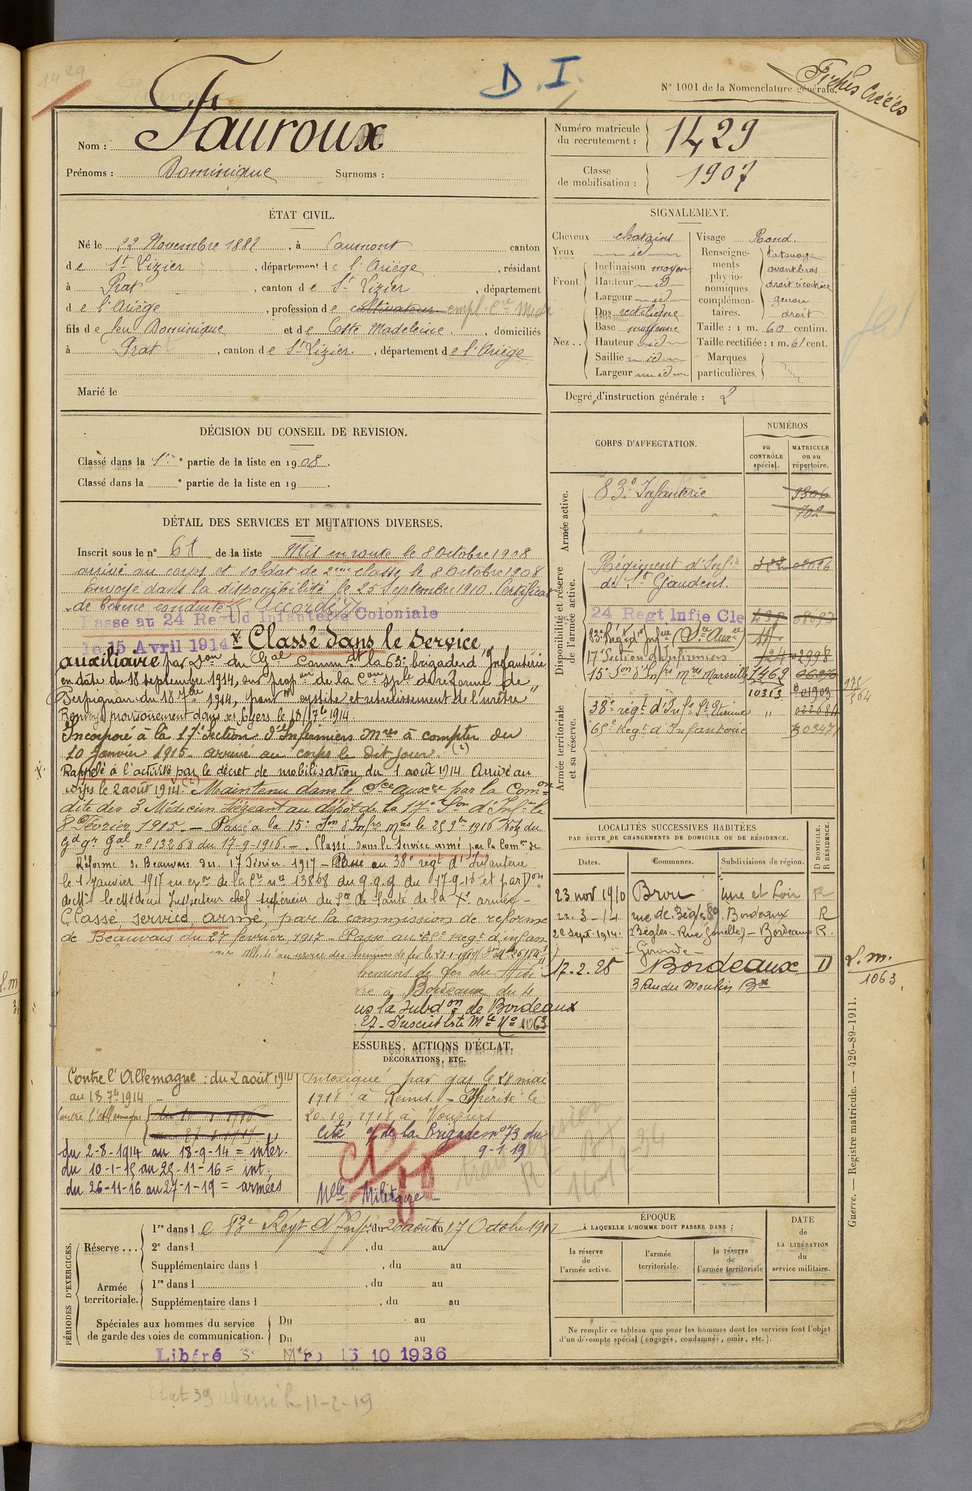 D. I.
N° 1001 de la Nomenclature générale.
Fiches Créées
1429
Nom : Fauroux
Prénoms : Dominique Surnoms :
Numéro matricule du recrutement : 1429
Classe de mobilisation : 1907
ÉTAT CIVIL.
Né le 22 Novembre 1887, à Caumont canton
de St Lizier, département de l'Ariège, résidant
à Prat, canton de St Lizier, département
de l'Ariège, profession de cultivateur empl. Cce
fils de feu Dominique et de Coste Madeleine, domiciliés
à Prat, canton de St Lizier, département de l'Ariège
Marié le
SIGNALEMENT.
Cheveux chatains
Yeux id
Front. Inclinaison moyen
Hauteur id
Largeur id
Nez. Dos rectiligne
Base moyenne
Hauteur id
Saillie id
Largeur id
Visage Rond.
Renseignements physionomiques complémentaires. tatouage avant bras droit genou droit
Taille : 1 m. 60 centim.
Taille rectifiée : 1 m. 61 cent.
Marques particulières.
Degré d'instruction générale : 2
DÉCISION DU CONSEIL DE REVISION.
Classé dans la 1re partie de la liste en 1908.
Classé dans la e partie de la liste en 19
DÉTAIL DES SERVICES ET MUTATIONS DIVERSES.
Inscrit sous le n° 61 de la liste Mis en route le 8 Octobre 1908
arrivé au corps et soldat de 2me classe le 8 Octobre 1908
Envoyé dans la disponibilité le 25 Septembre 1910. Certificat
de bonne conduite Accordé
Passé au 24 Regt d'Infanterie Coloniale
le 15 Avril 1914 Classé dans le Service
auxiliaire par Don du Gal Commdt la 63e brigade d'Infanterie
en date du 18 septembre 1914, sur propon de la Con Sple de réforme de
Perpignan du 18 7bre 1914, pour cystite et rétrécissement de l'urètre"
Renvoyé provisoirement dans ses foyers le 18/7bre 1914.
Incorporé à la 17e Section d'Infirmiers Mres à compter du
10 janvier 1915. arrivé au corps le dit jour. (2)
Rappelé à l'activité par le décret de mobilisation du 1 août 1914. Arrivé au
corps le 2 août 1914. Maintenu dans le Sce auxre par la Com
dite des 3 Médecins siégeant au dépôt de la 17e Son d'Inf. le
8 Février 1915. — Passé à la 15e Son d'Infrs Mres le 25 9bre 1916 Note du
Gd Qr Gal n° 13868 du 17-9-1916. — Passé dans le Service armé par la Comon de
Réforme de Beauvais du 17 Février 1917 — Passé au 38e régt d'Infanterie
le 1 Janvier 1917 en exon de la Cre n° 13868 du G.Q.G du 17-9-16 et par Don
de Mr le Médecin Inspecteur chef supérieur du Sce de Santé de la Xe armée —
Classé service armé, par la commission de réforme
de Beauvais du 27 février 1917 — Passé au 65e Regt d'infan
chemins de fer du Midi
à Bordeaux du 4
la Subdon de Bordeaux
27 — Inscrit liste Mle N° 1063
BLESSURES, ACTIONS D'ÉCLAT,
DÉCORATIONS, ETC.
Contre l'Allemagne : du 2 août 1914
au 18 7bre 1914
Contre l'Allemagne
du 2-8-1914 au 18-9-14 = intér.
du 10-1-15 au 25-11-16 = int.
du 26-11-16 au 27-1-19 = armées
Intoxiqué par gaz le 28 mai
1918 à Reims. —
20-10-1918 à Vouziers
Cité O. de la Brigade n° 73 du
9-1-19
Mlle Militaire
CORPS D'AFFECTATION.
NUMÉROS
AU CONTRÔLE spécial.
MATRICULE ou au répertoire.
Armée active.
83e Infanterie 9306
702
Disponibilité et réserve de l'armée active.
Régiment d'Infie de St Gaudens
24 Regt Infie Cle
83e Regt d'Infie (Sce Auxre)
17e Section d'Infirmiers
15e Son d'Infrs Mres Marseille 2469
10313 01903
Armée territoriale et sa réserve.
38e régt d'Infie St Etienne "
65e Regt d'Infanterie 303471
LOCALITÉS SUCCESSIVES HABITÉES
PAR SUITE DE CHANGEMENTS DE DOMICILE OU DE RÉSIDENCE.
Dates. Communes. Subdivisions de région. D DOMICILE. R RÉSIDENCE.
23 nov 1910 Brou Eure et Loir R
22-3-14 rue de Bègles, 89 Bordeaux R
22 Sept. 1914. Bègles - Bordeaux R.
Gironde
17-2-25 Bordeaux D
3 Rue du Moulin Bx
L. m. 1063.
Guerre. — Registre matricule. — 426-89-1911.
PÉRIODES D'EXERCICES.
Réserve... 1re dans le 83e Regt d'Infie du 26 août au 17 Octobre 1912
2e dans l , du au
Supplémentaire dans l , du au
Armée territoriale. 1re dans l , du au
Supplémentaire dans l , du au
Spéciales aux hommes du service de garde des voies de communication. Du au
Du au
Libéré Sce Mre 15 10 1936
ÉPOQUE
À LAQUELLE L'HOMME DOIT PASSER DANS :
la réserve de l'armée active.
l'armée territoriale.
la réserve de l'armée territoriale
DATE de LA LIBÉRATION du service militaire.
Ne remplir ce tableau que pour les hommes dont les services font l'objet
d'un décompte spécial (engagés, condamnés, omis, etc.).